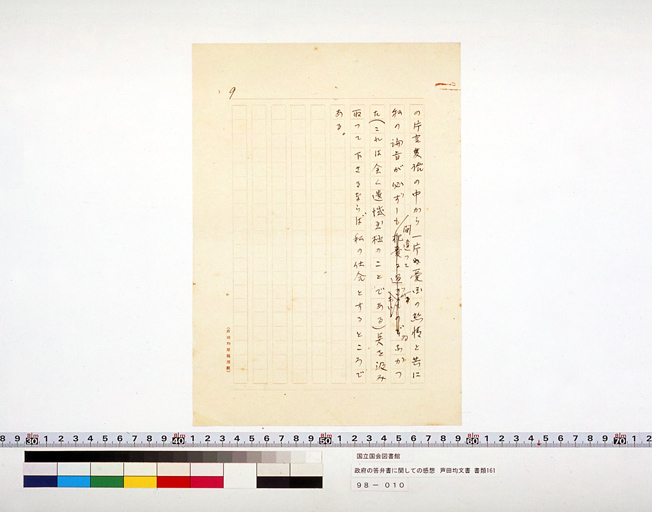 9
の片言隻語の中から一片の憂国の熱情と共に
私の論旨が必ずしも 間違って のでなかつ
た(これは全く遺憾至極のことである)点を汲み
取つて下さるならば私の仕合とするところで
ある。
国立国会図書館
政府の答弁書に関しての感想 芦田均文書 書類161
98-010